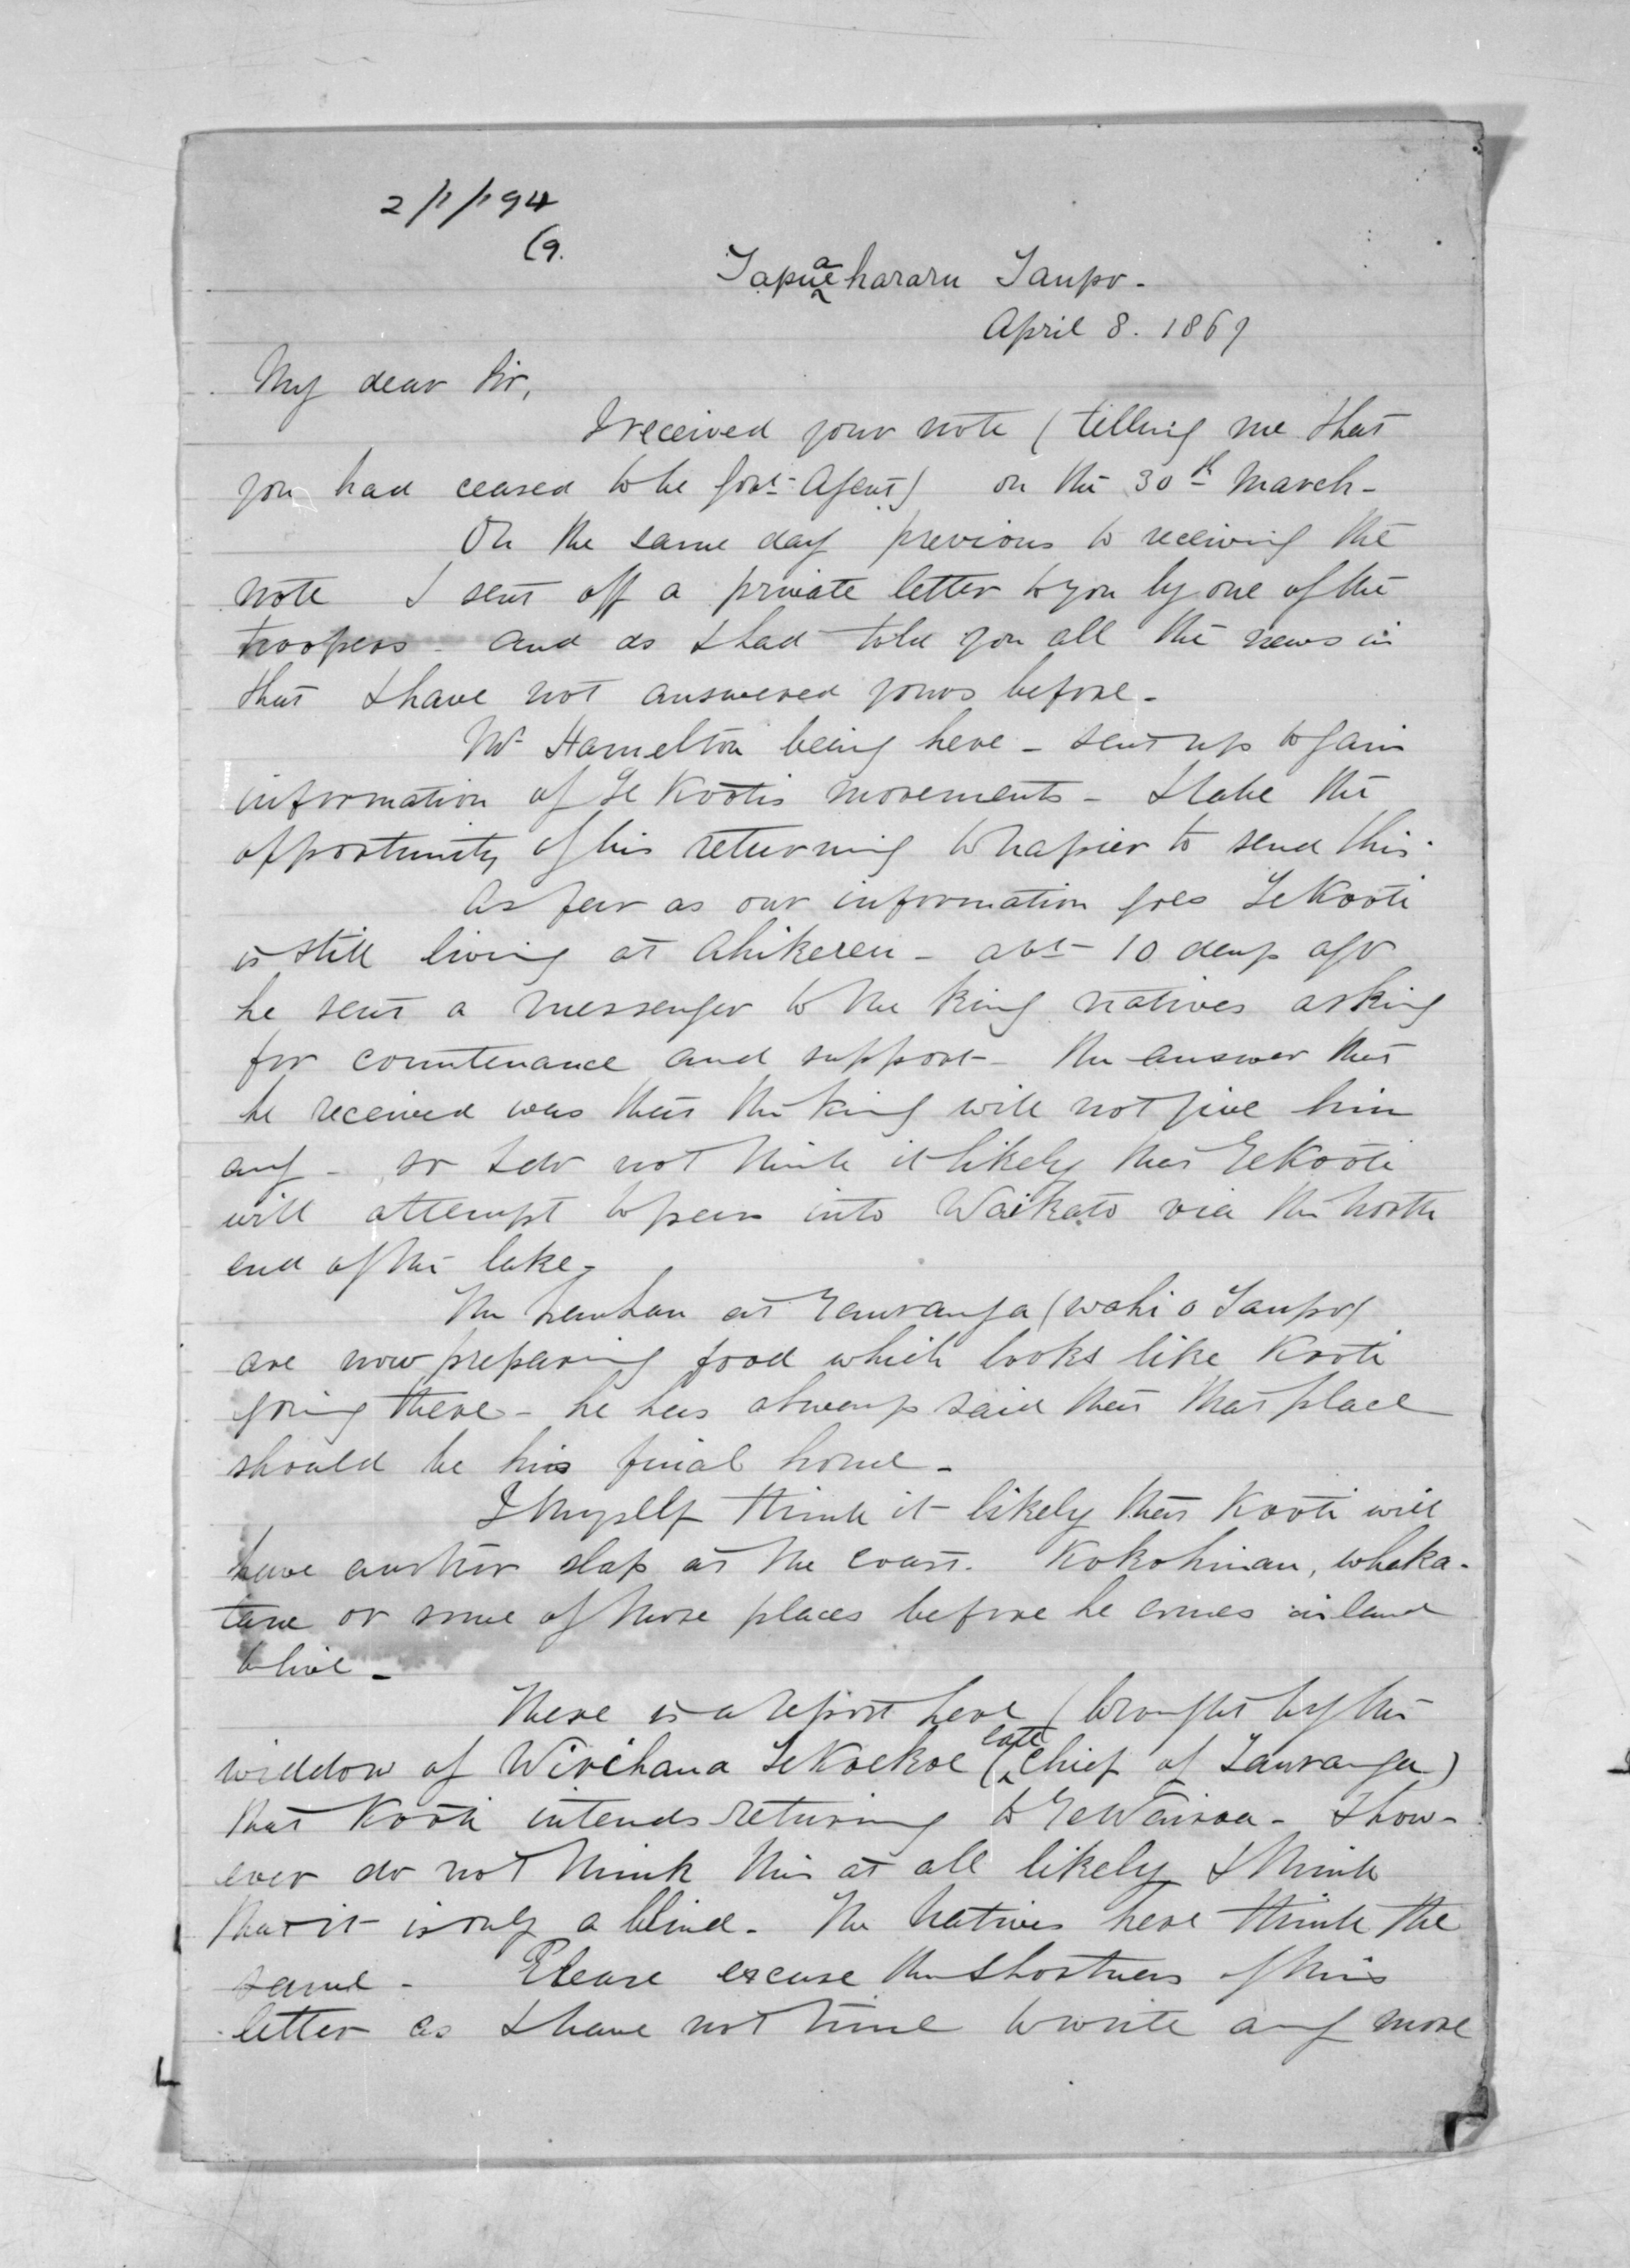 2/1/194
(9.
Tapuaeharuru Taupo -
April 8. 1869
My dear Sir,
I received your note (telling me that
you had ceased to be Govt. Agent) on the 30th March -
On the same day previous to receiving the
note I sent off a private letter to you by one of the
troopers - and as I had told you all the news in
that I have not answered yours before -
Mr Hamelton being here - sent up to gain
information of Te Kootis movements - I take the
opportunity of his returning to Napier to send this.
As far as our information goes Te Kooti
is still living at Ahikereru - abt 10 days ago
he sent a messenger to the king natives asking
for countenance and support - the answer that
he received was that the king will not give him
any - so I do not think it likely that Te Kooti
will attempt to pass into Waikato via the North
end of the lake -
The hauhau at Tauranga (wahi o Taupo)
are now preparing food which looks like Kooti
going there - he has always said that that place
should be his final home -
I myself think it likely that Kooti will
have another slap at the coast. Kokohinau, whaka-
tane or some of those places before he comes inland
to live -
There is a report here (brought by the
widdow of Wirihana Te Koekoe (late chief of Tauranga)
that Kooti intends returning to Te Wairoa - I how-
ever do not think this at all likely I think
that it is only a blind - The Natives here think the
same - Please excuse the shortness of this
letter as I have not time to write any more